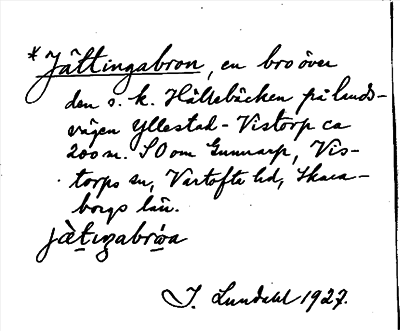 * Jättingabron, en bro över
den s. k. Hällebäcken på lands-
vägen Yllestad - Vistorp ca
200 m. SO om Gunnarp, Vis-
torps sn, Vartofte hd, Skara-
borgs län.
jä̀tiŋabróa
I. Lundahl 1927.